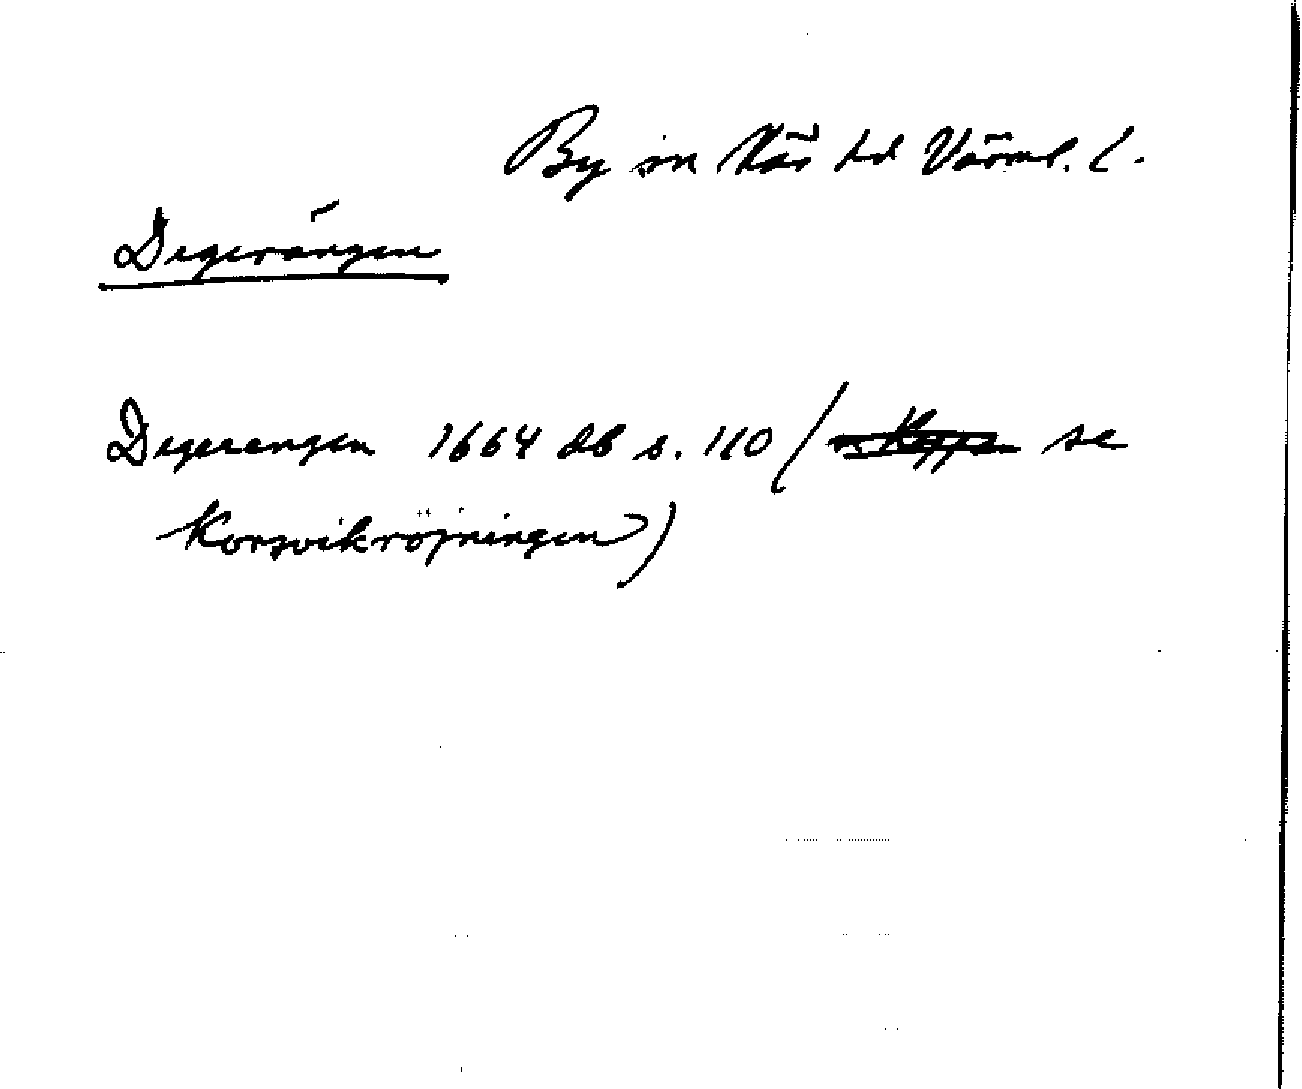 By sn Näs hd Värml. l.
Degerängen
Degerengen 1664 db s. 110 ( se
Korsvikröjningen)